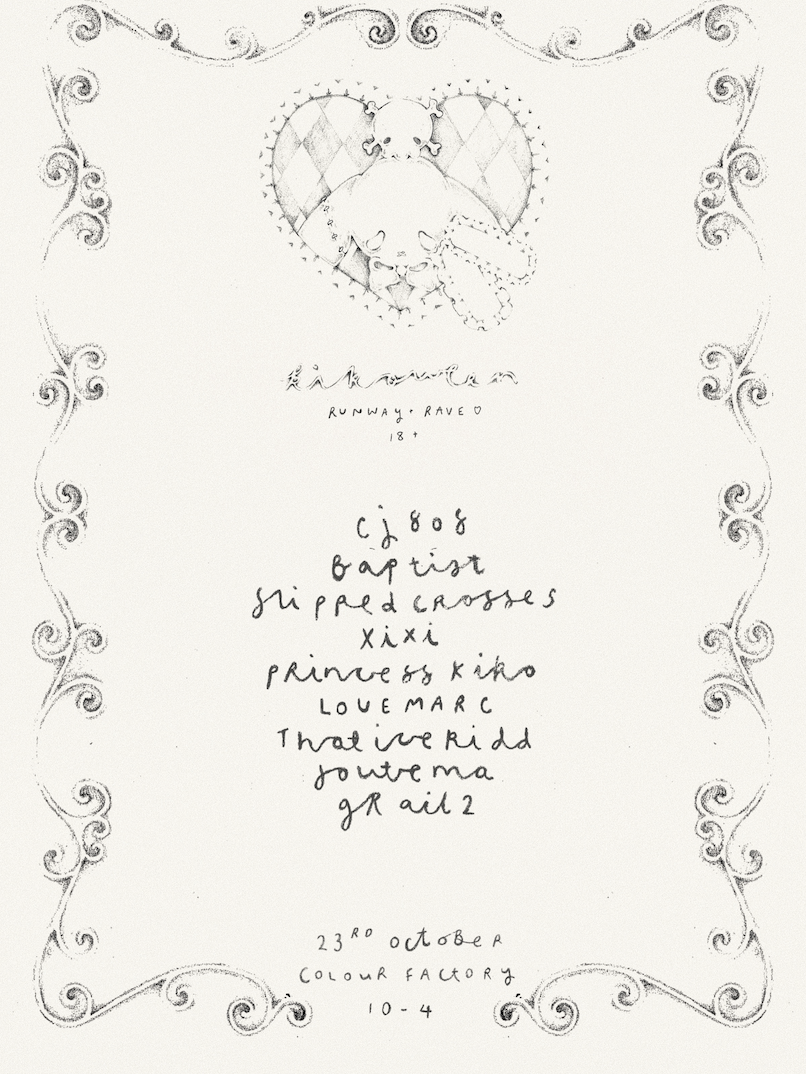 kikowten
RUNWAY + RAVE ♡
18+
cj808
Baptist
slipped crosses
xixi
princess xiko
LOVEMARC
Thaticekidd
soutema
gRail2
23RD OCtoBeR
COLOUR FACTORY
10-4